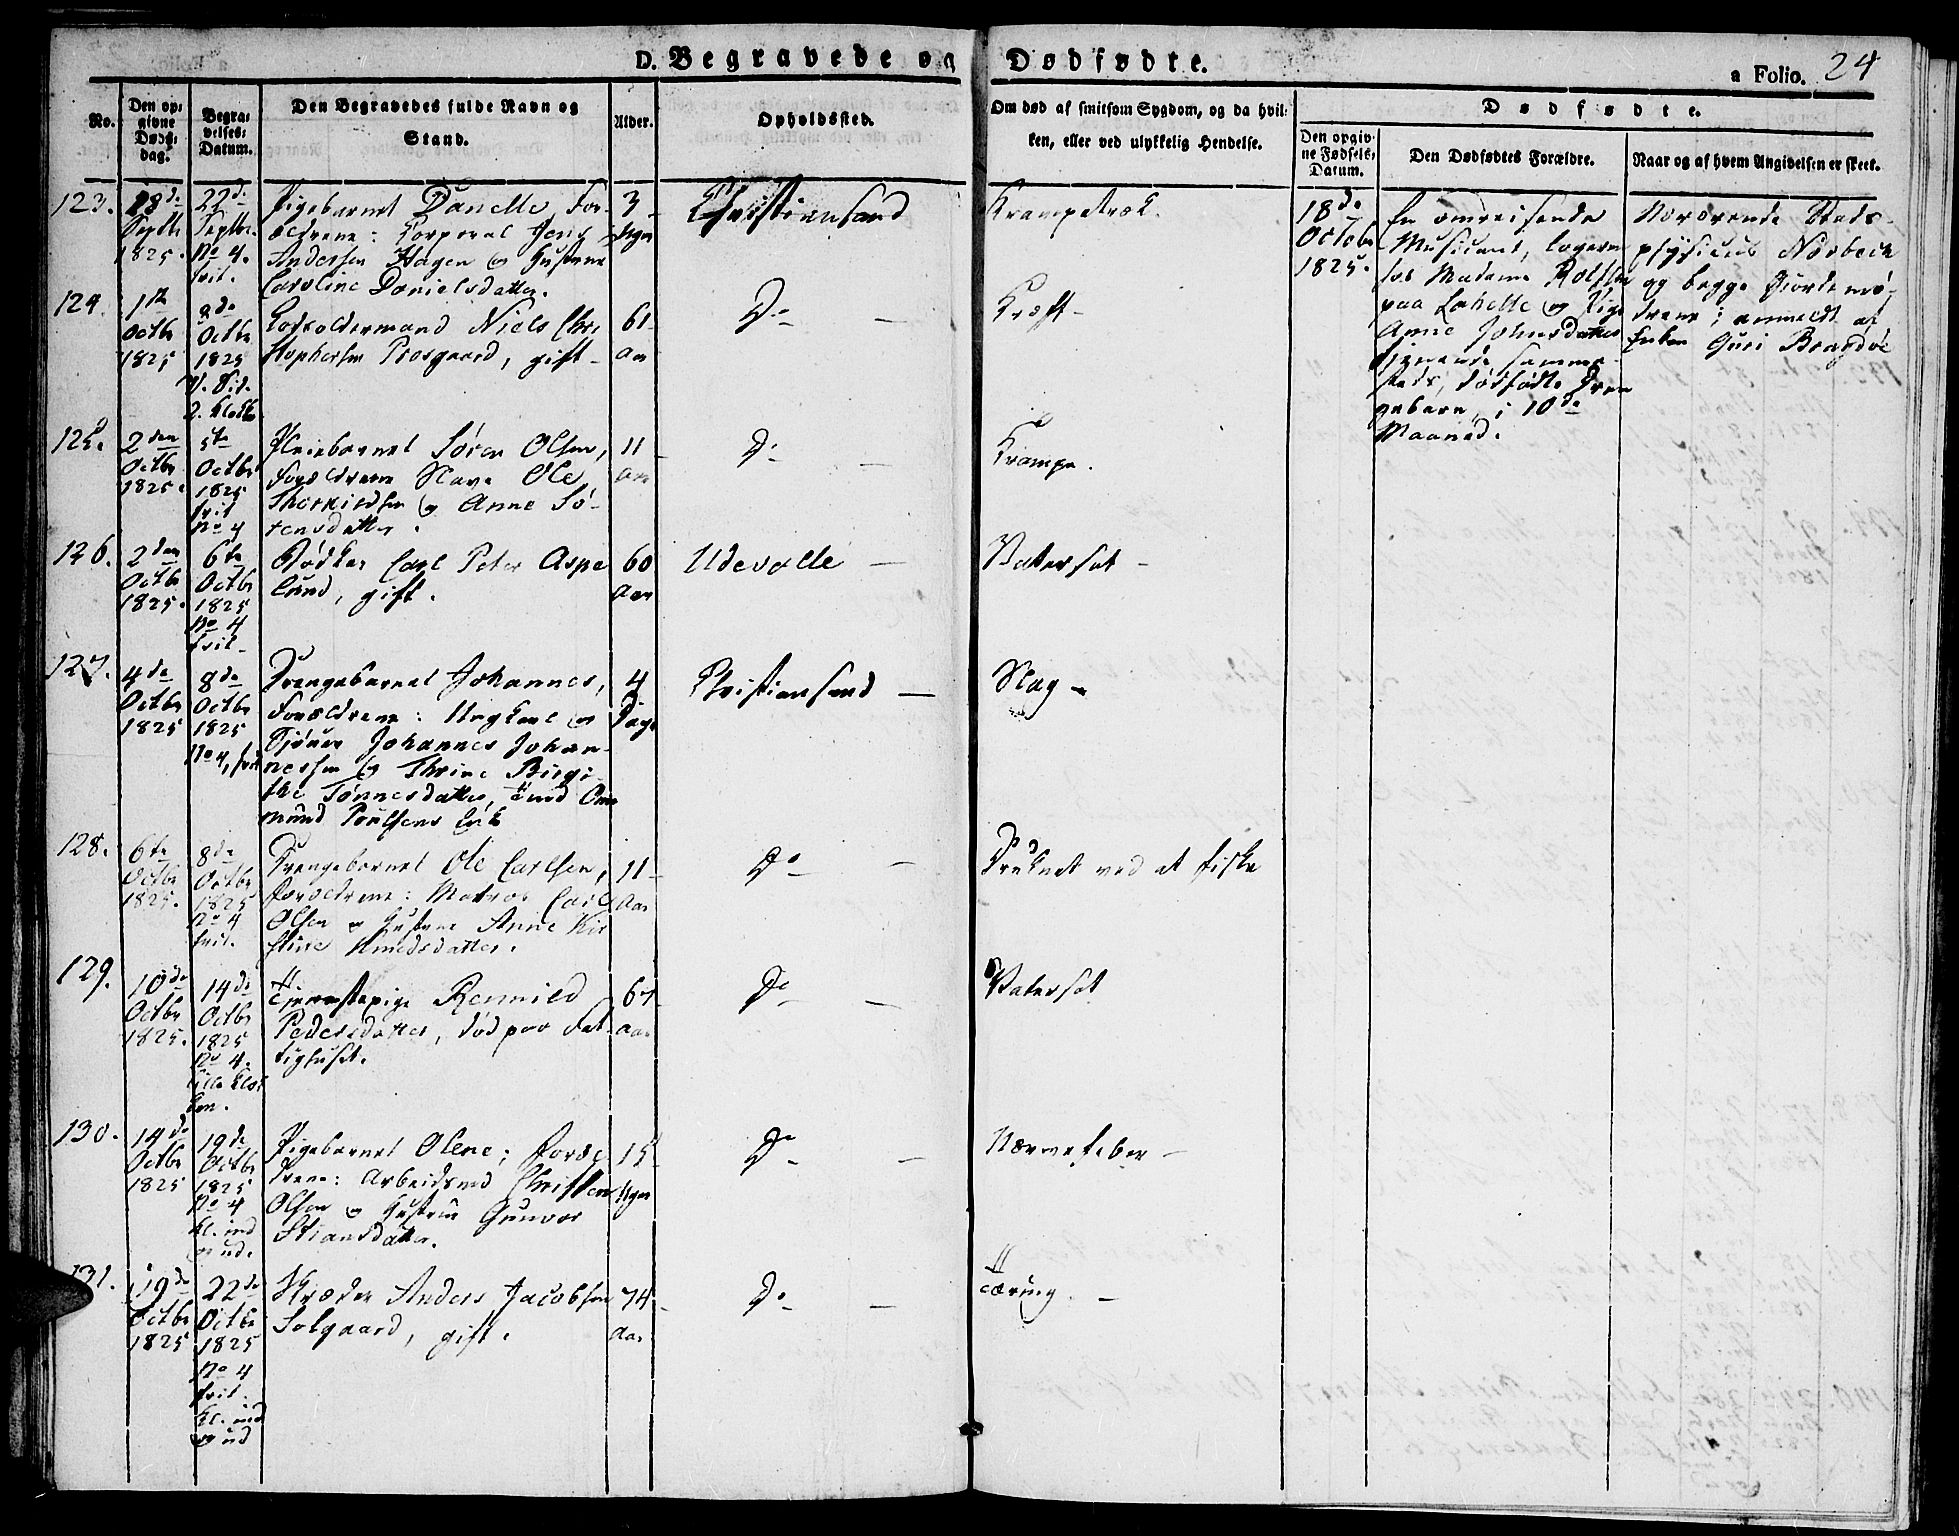 D. Begravede og Dødfødte.
a Folio. 24
No.
Den op-
givne
Døds-
dag.
Begra-
velses-
Datum.
Den Begravedes fulde Navn og
Stand.
Alder.
Opholdssted.
Om død af smitsom Sygdom, og da hvil-
ken, eller ved ulykkelig Hendelse.
Dødfødte.
Den opgiv-
ne Fødsels-
Datum.
Den Dødfødtes Forældre.
Naar og af hvem Angivelsen er skeet.
123.
18de
Septbr
1825.
22de
Septbr.
No 4.
frit.
Pigebarnet Danelle For-
ældrene: Korporal Jens
Andersen Hagen og Hustrue
Caroline Danielsdatter.
3
Uger
Christiansand
Krampetræk.
18de
Octobr
1825.
En omreisende
Musicant, logerende
hos Madame Rolfsen
paa Lahelle og Pige
Anne Johnsdatter
tjenende samme-
steds, dødfødte Dren
gebarn, i 10de
Maaned.
Nærværende Stads-
physicus Norbech
og begge Jordemø-
drene; anmeldt af
Enken Guri Brandvé
124.
1ste
Octbr
1825
8de
Octbr
1825
2. Klokker
Lodsoldermand Niels Chri
stophersen Prosgaard, gift
61
Aar
Do
Kræft
125.
2den
Octbr
1825.
5te
Octbr
1825
frit
No 4
Pleiebarnet Søren Olsen,
Forældrene Slave Ole
Thorkildsen og Anne Sø-
rensdatter.
11
Aar
Do
Krampe.
126.
2den
Octbr
1825.
6te
Octbr
1825
No 4
frit
Bødker Carl Peter Aspe
lund, gift.
60
Aar
Udevalle
Vatersot
127.
4de
Octbr
1825
8de
Octbr
1825
No 4, frit
Drengebarnet Johannes,
Forældrene: Ungkarl og
Johannes Johan-
nessen og Thrine Birgi-
the Tønnesdatter,
mund Poulsens
4
Dage
Christiansand
Slag
128.
6te
Octbr
1825.
8de
Octbr
1825
No 4
frit.
Drengebarnet Ole Carlsen,
Forældrene: Matros Carl
Olsen og Hustrue Anne Kir
stine Amedsdatter.
11
Aar
Do
Druknet ved at fiske
129.
10de
Octbr
1825.
14de
Octbr
1825
No 4.
lille Klok
ken.
Tjenestepige Rennild
Pedersdatter, død paa Fat-
tighuset.
67
Aar
Do
Vatersot
130.
14de
Octbr
1825
19de
Octbr
1825
No 4
Kl. ind
og ud.
Pigebarnet Olene; Foræl
drene: Arbeidsmd Christen
Olsen og Hustrue Gunvor
Stiansdatter.
15
Uger
Do
Nervefeber
131.
19de
Octbr
1825
22de
Octbr
1825
No 4
frit.
Kl. ind
og ud
Skræder Anders Jacobsen
Solgaard, gift.
74
Aar
Do
Tæring.